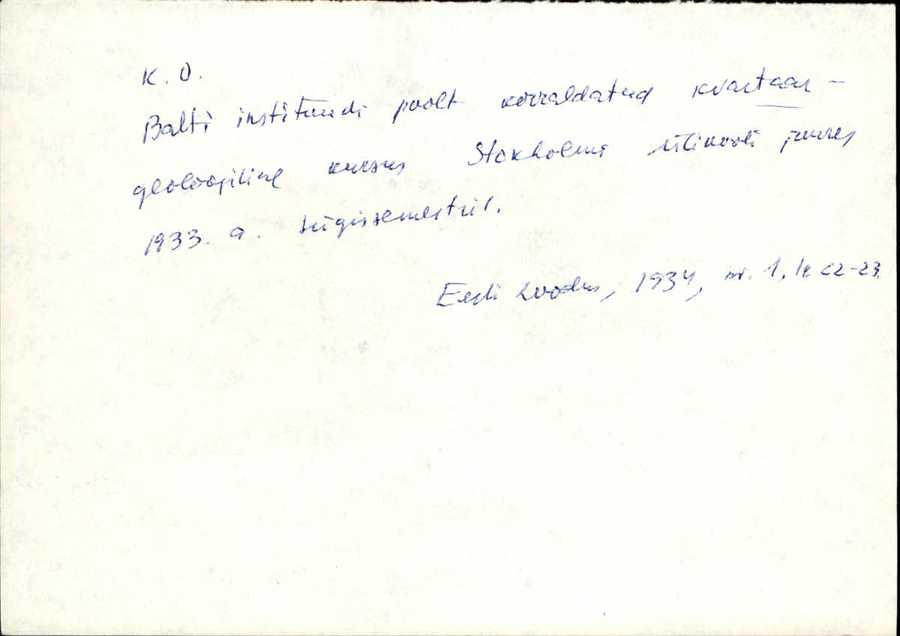 K. O.
Balti instituudi poolt korraldatud kvartaar-
geoloogiline kursus Stokholmi ülikooli juures
1933. a. sügissemestril.
Eesti Loodus, 1934, nr. 1, lk 22-23